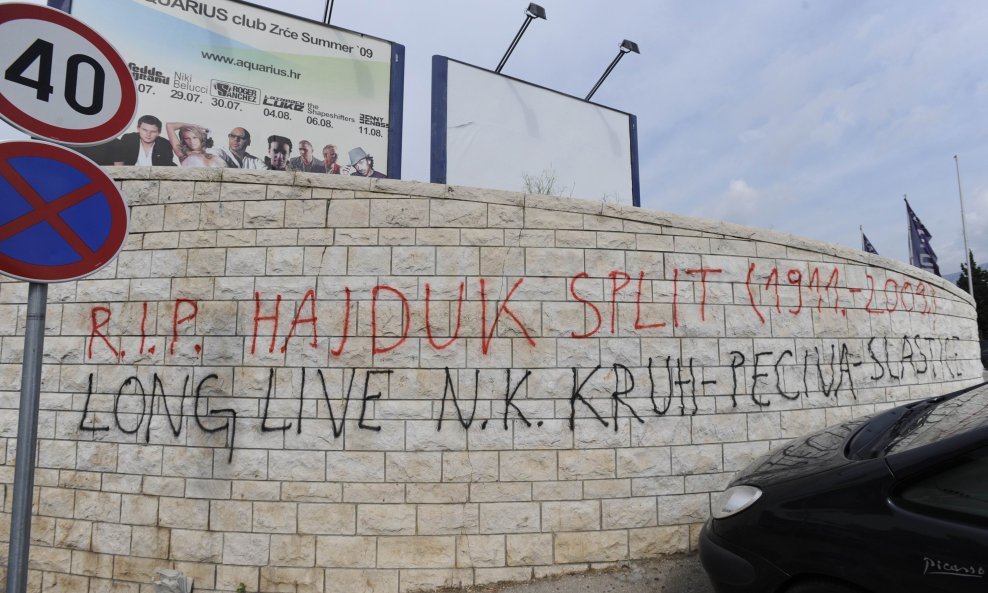 AQUARIUS club Zrće Summer `09
www.aquarius.hr
fedde le grand
Niki Belucci
ROGER SANCHEZ
LAIDBACK LUKE
the Shapeshifters
BENNY BENASSI
.07. 29.07. 30.07. 04.08. 06.08. 11.08.
40
R.I.P. HAJDUK SPLIT (1911.-2009.)
LONG LIVE N.K. KRUH-PECIVA-SLASTICE
picasso